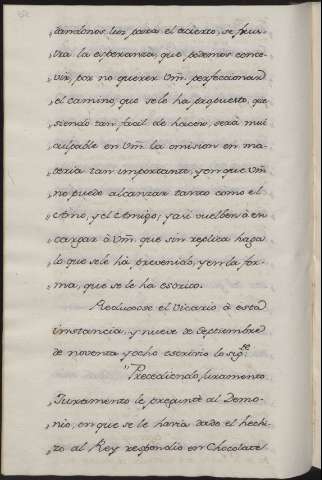 „ dandonos luz para el acierto, se frus-
„ tra la esperanza, que podemos conce-
„ vir, por no querer Vm. perfeccionar
„ el camino, que se le ha propuesto, que
„ siendo tan facil de hacer, será mui
„ culpable en Vm. la omision en ma-
„ teria tan importante, y en que Vm.
„ no puede alcanzar tanto como el
„ Amo, y el Amigo; y asi vuelben á en-
„ cargar á Vm. que sin replica haga
„ lo que se le há prevenido, y en la for-
„ ma, que se le ha escrito.
Reduxose el Vicario á esta
instancia, y nueve de Septiembre
de noventa y ocho escrivio lo sigte
„ Precediendo juramento
„ Juramento le pregunté al Demo-
„ nio, en que se le havia dado el hechi-
„ zo al Rey respondio en Chocolate